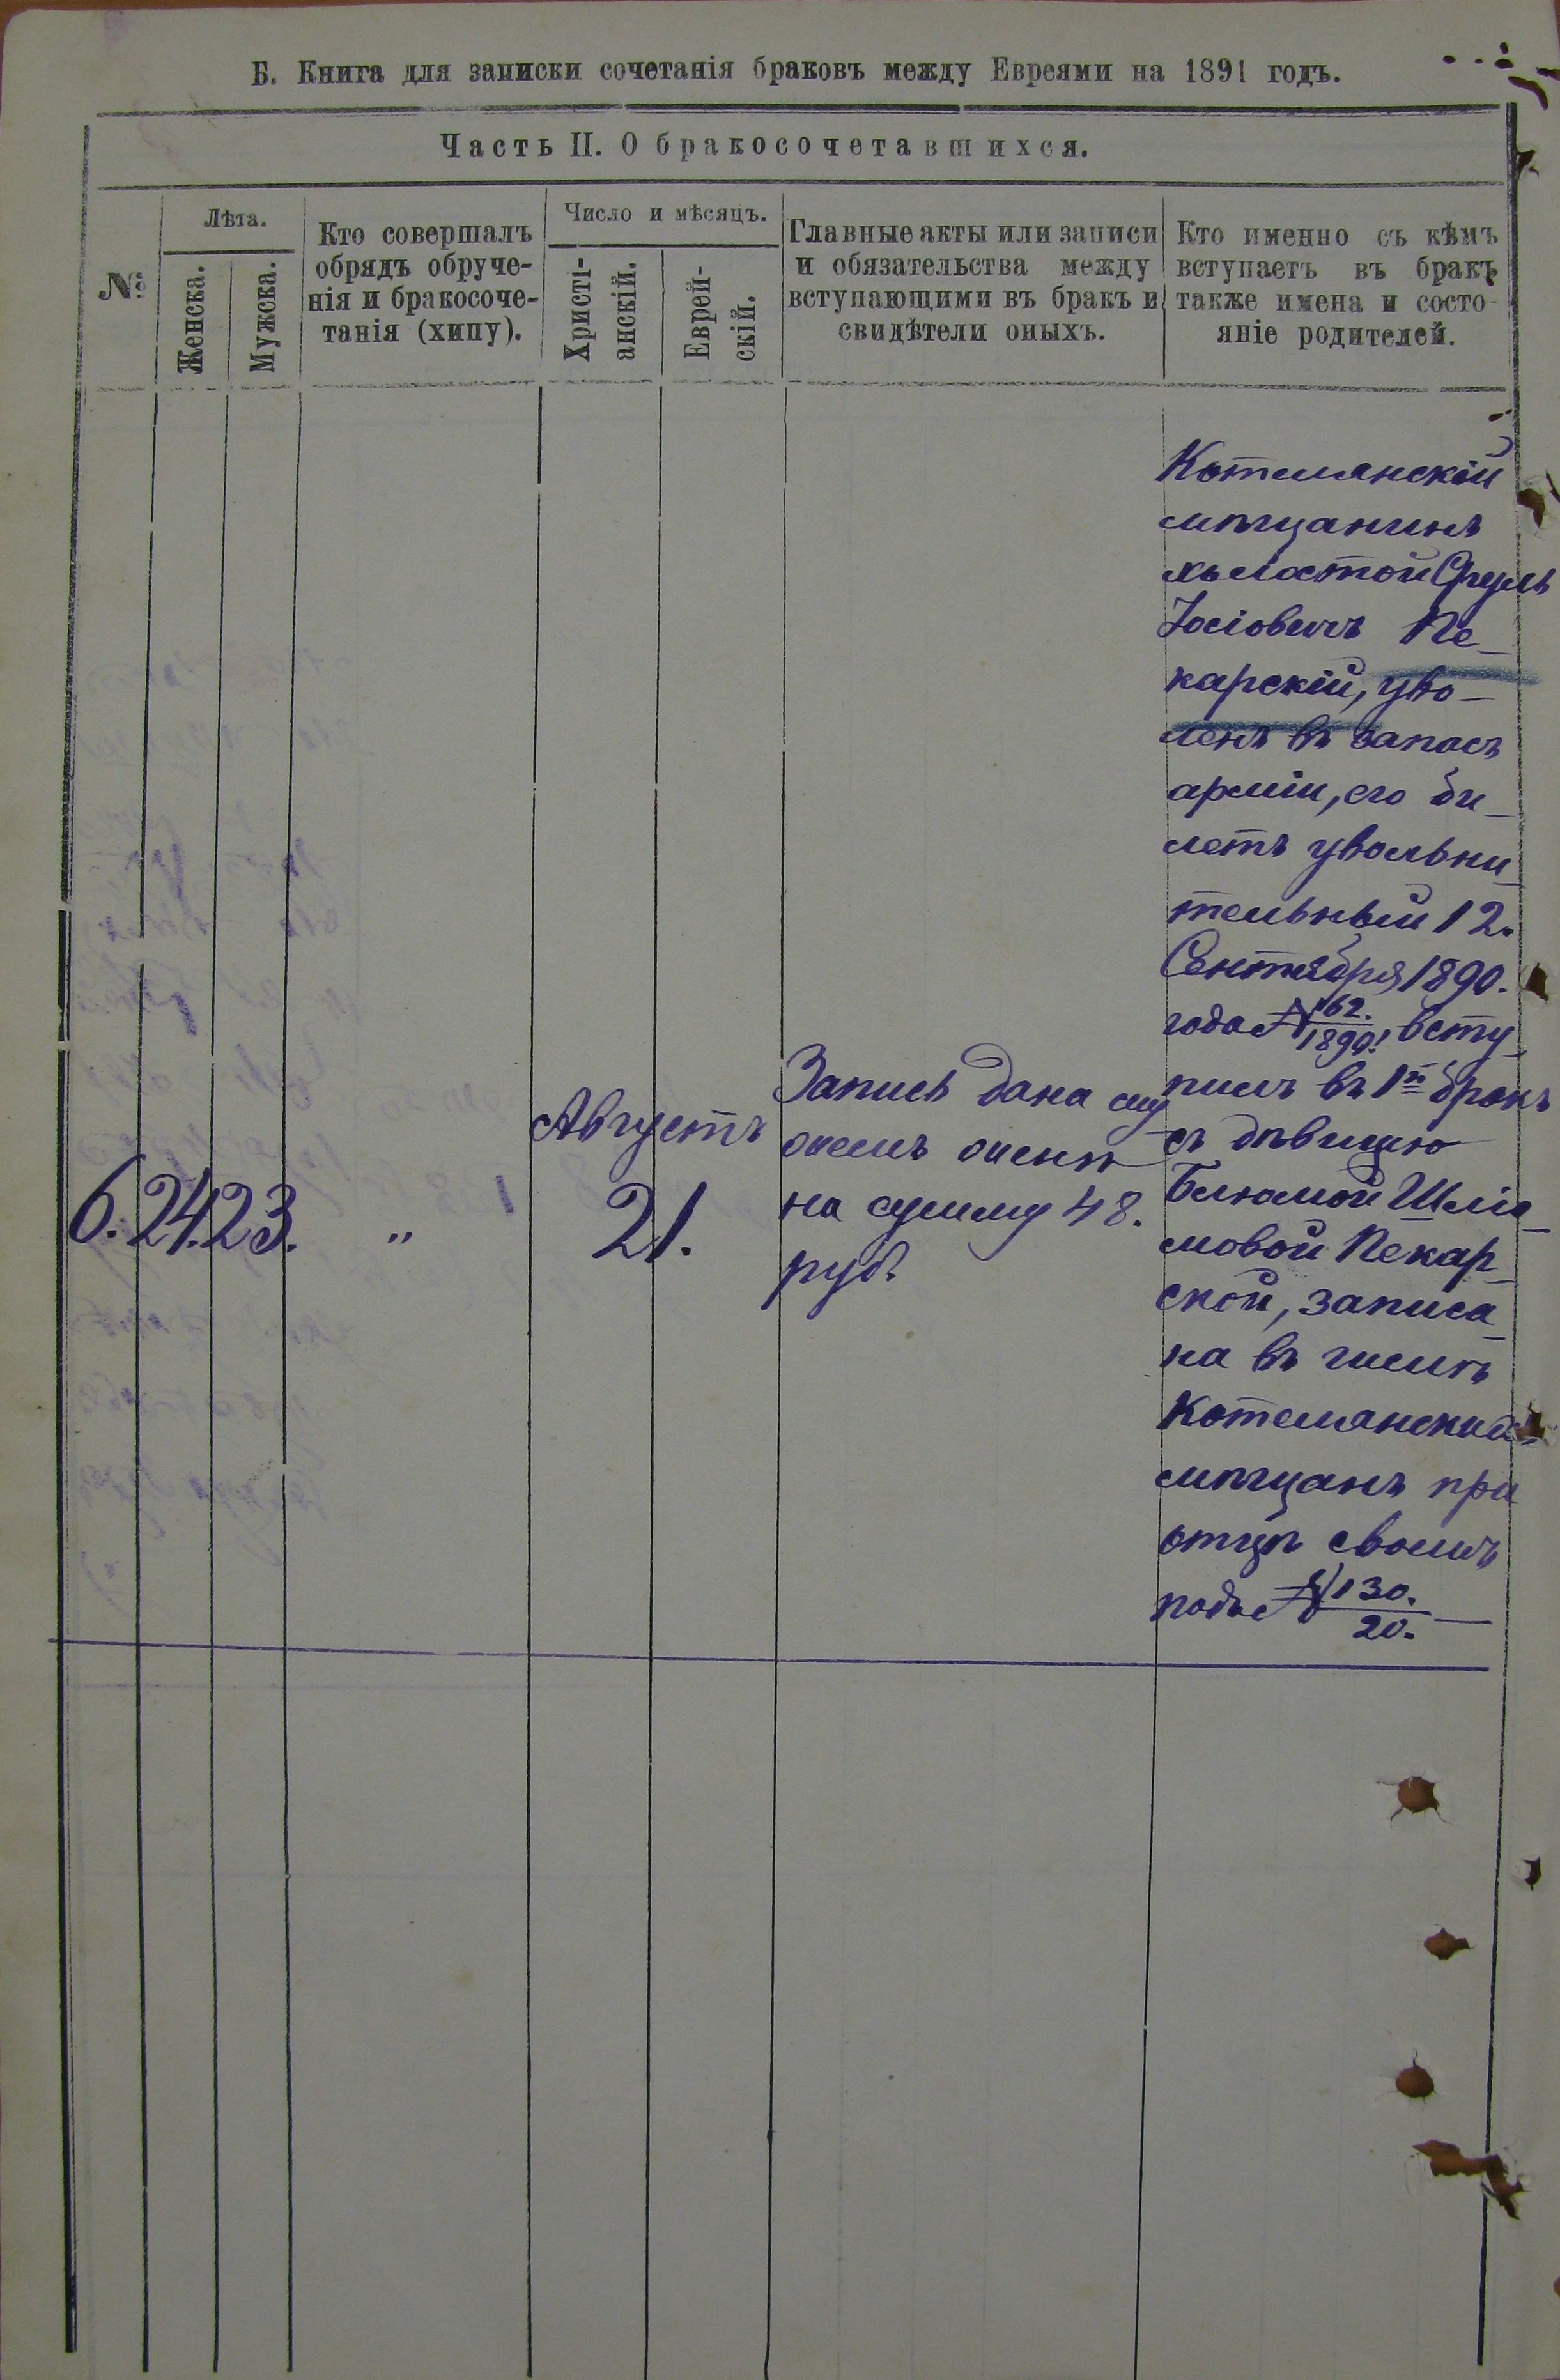 Б. Книга для записки сочетанія браковъ между Евреями на 1891 годъ.
Часть II. О бракосочетавшихся.
№
Лѣта.
Женска.
Мужска.
Кто совершалъ
обрядъ обруче-
нія и бракосоче-
танія (хипу).
Число и мѣсяцъ.
Христі-
анскій.
Еврей-
скій.
Главные акты или записи
и обязательства между
вступающими въ бракъ и
свидѣтели оныхъ.
Кто именно съ кѣмъ
вступаетъ въ бракъ
также имена и состо-
яніе родителей.
6.
24.
23.
"
Августъ
21.
Запись дана
жене
на сумму 48.
руб.
мѣщанинъ
холостой Сруль
Іосіовичъ Пе-
карскій, уво-
ленъ въ запасъ
арміи, его би-
летъ увольни-
тельный 12.
Сентября 1890.
года № 162./1890! всту-
пилъ въ 1й бракъ
съ дѣвицею
Блюмой Шліо-
мовой Пекар-
ской, записа-
на въ числѣ
мѣщанъ при
отцѣ своемъ
подъ № 130./20.